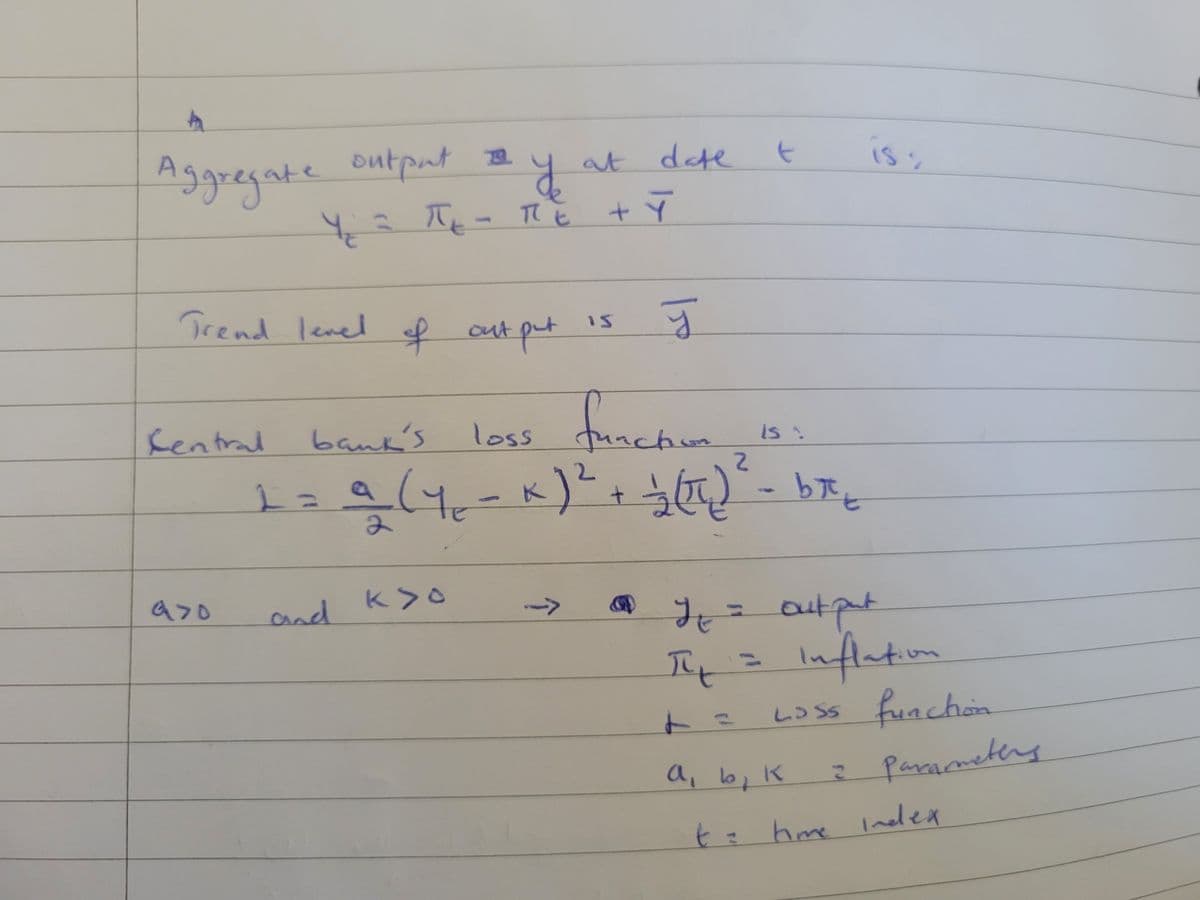 Aggregate output y at date t is:
Y_t = π_t - π^e_t + Ȳ
Trend level of output is ȳ
Central bank's loss function is:
L = a/2 (Y_t - K)² + 1/2 (π_t)² - bπ_t
a>0 and K>0 → y_t = output
π_t = Inflation
L = Loss function
a, b, K = parameters
t = time index